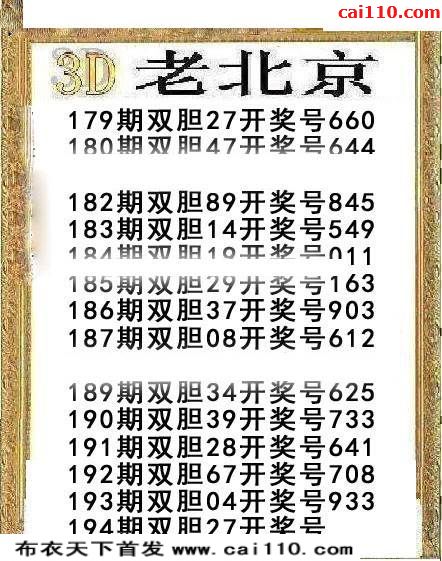 cai110.com
3D 老北京
179期双胆27开奖号660
180期双胆47开奖号644
182期双胆89开奖号845
183期双胆14开奖号549
184期双胆19开奖号011
185期双胆29开奖号163
186期双胆37开奖号903
187期双胆08开奖号612
189期双胆34开奖号625
190期双胆39开奖号733
191期双胆28开奖号641
192期双胆67开奖号708
193期双胆04开奖号933
194期双胆27开奖号
布衣天下首发 www.cai110.com